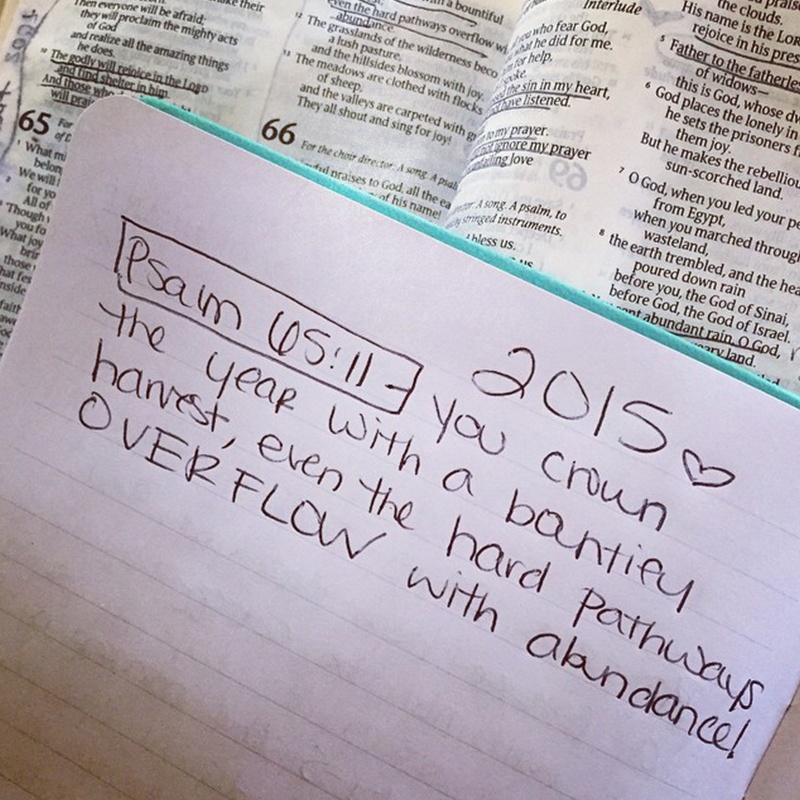 Then everyone will be afraid;
they will proclaim the mighty acts
of God
and realize all the amazing things
he does.
10 The godly will rejoice in the LORD
and find shelter in him.
And those who
will prai
65
What mi
belon
We will
for yo
All of
Though
you fo
What joy
brin
those
inside
faith
with a bountiful
even the hard pathways overflow wi
abundance.
12 The grasslands of the wilderness beco
a lush pasture,
and the hillsides blossom with joy.
13 The meadows are clothed with flocks
of sheep,
and the valleys are carpeted with g
They all shout and sing for joy!
66 For the choir director: A song. A psal
ful praises to God, all the ea
of his name!
Interlude
you who fear God,
what he did for me.
for help,
spoke.
the sin in my heart,
have listened.
to my prayer.
not ignore my prayer
unfailing love
A song. A psalm, to
by stringed instruments.
bless us.
us
the clouds.
His name is the LOR
rejoice in his pres
5 Father to the fatherles
of widows—
this is God, whose dw
6 God places the lonely in
he sets the prisoners f
them joy.
But he makes the rebelliou
sun-scorched land.
7 O God, when you led your pe
from Egypt,
when you marched through
wasteland,
8 the earth trembled, and the hea
poured down rain
before you, the God of Sinai,
before God, the God of Israel.
sent abundant rain, O God,
weary land.
2015 ♡
Psalm 65:11- you crown
the year with a bountify
harvest, even the hard pathways
OVERFLOW with abundance!